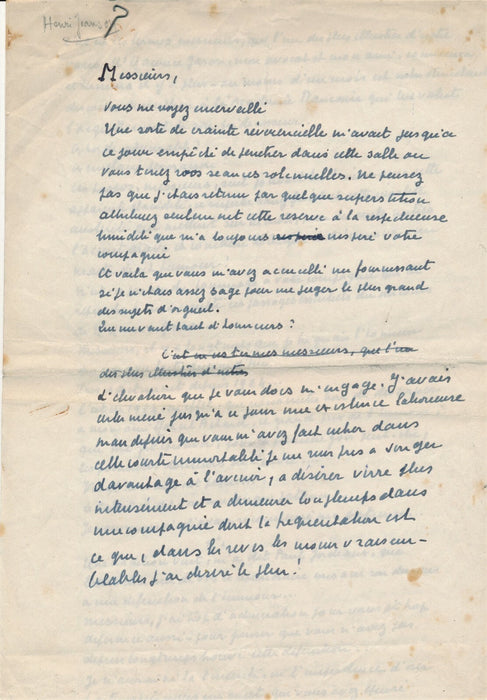 Henri Jeanson ?
Messieurs,
Vous me voyez émerveillé
Une sorte de crainte révérencielle m'avait jusqu'à
ce jour empêché de pénétrer dans cette salle où
vous tenez vos séances solennelles. Ne pensez
pas que j'étais retenu par quelque superstition
attribuez seulement cette réserve à la respectueuse
timidité que m'a toujours inspiré votre
compagnie
Et voilà que vous m'avez accueilli me fournissant
si je n'étais assez sage pour me juger le plus grand
des sujets d'orgueil.
Qui me vaut tant d'honneurs ?
C'est en ces termes messieurs, que l'un
des plus illustres d'entre
d'élévation que je vous dois m'engage. J'avais
certes mené jusqu'à ce jour une existence laborieuse
mais depuis que vous m'avez fait entrer dans
cette courte immortalité je me suis pris à songer
davantage à l'avenir, à désirer vivre plus
intensément et à demeurer longtemps dans
une compagnie dont la fréquentation est
ce que, dans les rêves les moins vraisem-
blables j'ai désiré le plus !